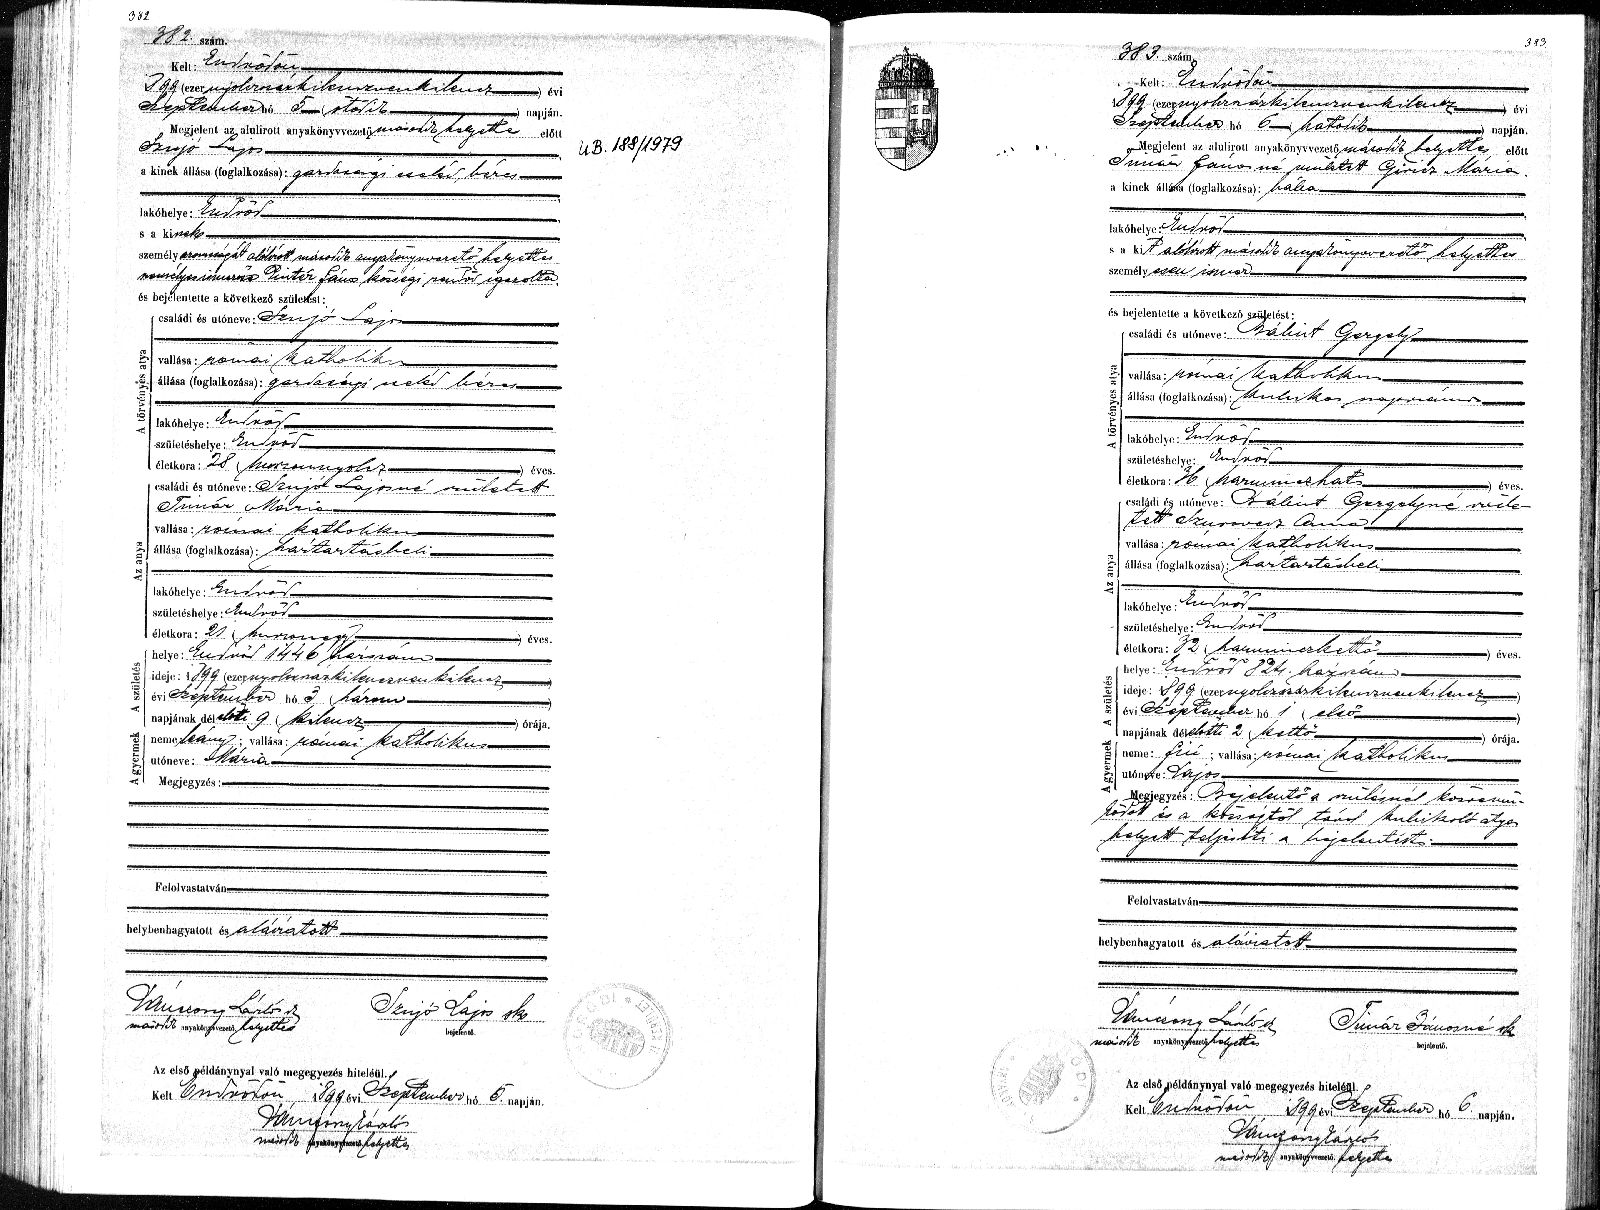 382
382. szám.
Kelt: Endrődön
1899 (ezernyolczszázkilenczvenkilencz) évi
Szeptember hó 5 (ötödik) napján.
Megjelent az alulirott anyakönyvvezető második helyettes előtt
Sznjó Lajos
a kinek állása (foglalkozása): gazdasági cseléd, béres
lakóhelye: Endrőd
s a kinek
személyazonosságát alólirott második anyakönyvvezető helyettes
Pintér János községi rendőr igazolta.
és bejelentette a következő születést:
A törvényes atya
családi és utóneve: Sznjó Lajos
vallása: római katholikus
állása (foglalkozása): gazdasági cseléd béres
lakóhelye: Endrőd
születéshelye: Endrőd
életkora: 28 (huszonnyolcz) éves.
Az anya
családi és utóneve: Sznjó Lajosné született
Timár Mária
vallása: római katholikus
állása (foglalkozása): háztartásbeli
lakóhelye: Endrőd
születéshelye: Endrőd
életkora: 21 (huszonegy) éves.
A születés
helye: Endrőd 1446 házszám
ideje: 1899 (ezernyolczszázkilenczvenkilencz)
évi Szeptember hó 3 (három)
napjának délelőtti 9 (kilencz) órája.
A gyermek
neme: leány; vallása: római katholikus
utóneve: Mária
Megjegyzés:
Felolvastatván
helybenhagyatott és aláiratott
Váncsony László s Sznjó Lajos sk
második anyakönyvvezető helyettes bejelentő.
Az első példánynyal való megegyezés hiteléül.
Kelt Endrődön 1899 évi Szeptember hó 5. napján.
Váncsony László
második anyakönyvvezető helyettes
UB. 188/1979
383
383. szám.
Kelt: Endrődön
1899 (ezernyolczszázkilenczvenkilencz) évi
Szeptember hó 6 (hatodik) napján.
Megjelent az alulirott anyakönyvvezető második helyettes előtt
Timár Jánosné született Giricz Mária
a kinek állása (foglalkozása): bába
lakóhelye: Endrőd
s a kit alólirott második anyakönyvvezető helyettes
személyesen ismer
és bejelentette a következő születést:
A törvényes atya
családi és utóneve: Bálint Gergely
vallása: római katholikus
állása (foglalkozása): kubikos napszámos
lakóhelye: Endrőd
születéshelye: Endrőd
életkora: 36 (harminczhat) éves.
Az anya
családi és utóneve: Bálint Gergelyné szüle-
tett Szurovecz Anna
vallása: római katholikus
állása (foglalkozása): háztartásbeli
lakóhelye: Endrőd
születéshelye: Endrőd
életkora: 32 (harminczkettő) éves.
A születés
helye: Endrőd 824. házszám
ideje: 1899 (ezernyolczszázkilenczvenkilencz)
évi Szeptember hó 1 (első)
napjának délelőtti 2 (kettő) órája.
A gyermek
neme: fiú; vallása: római katholikus
utóneve: Lajos
Megjegyzés: Bejelentő a szülésnél közremű-
ködött és a községtől távol kubikoló atya
helyett teljesiti a bejelentést.
Felolvastatván
helybenhagyatott és aláiratott
Váncsony László s Timár Jánosné sk
második anyakönyvvezető helyettes bejelentő.
Az első példánynyal való megegyezés hiteléül.
Kelt Endrődön 1899 évi Szeptember hó 6. napján.
Váncsony László
második anyakönyvvezető helyettes